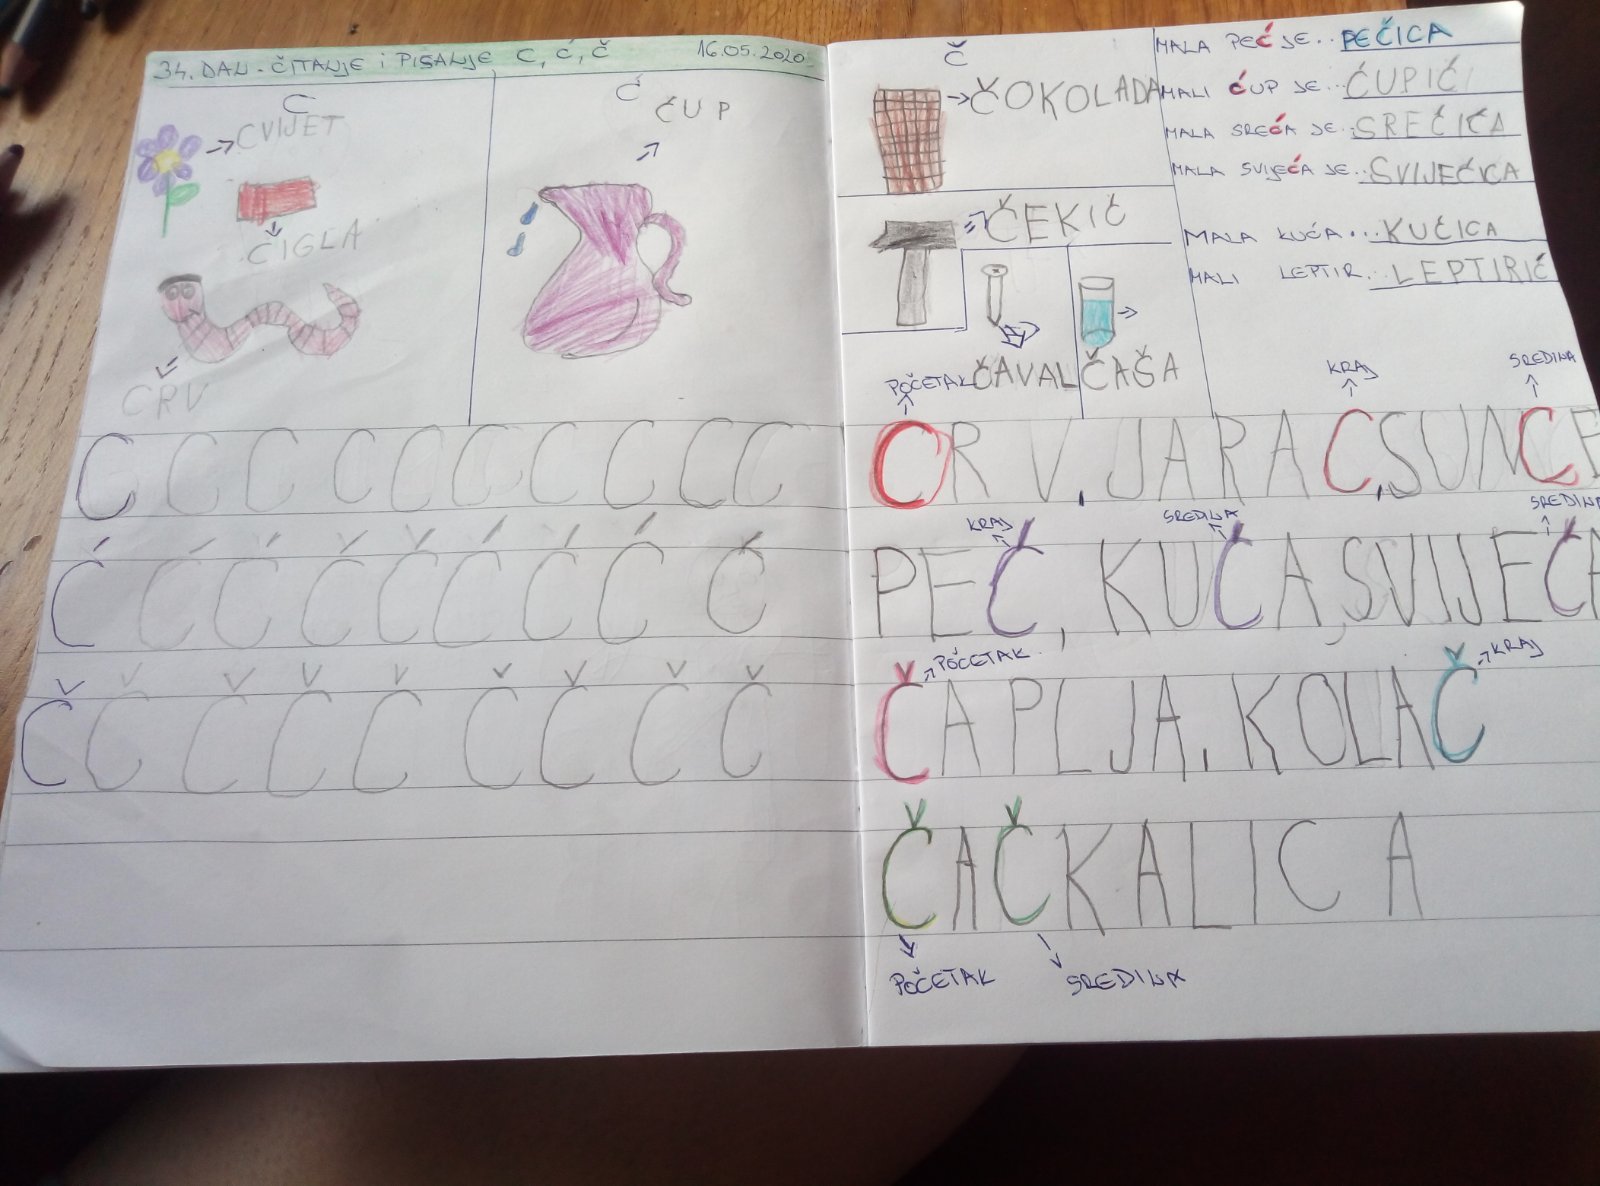 34. DAN - ČITANJE i PISANJE C, Ć, Č 16.05.2020.
C
CVIJET
CIGLA
CRV
Ć
ĆUP
C C C C C C C C C
Ć Ć Ć Ć Ć Ć Ć Ć Ć
Č Č Č Č Č Č Č Č Č
Č
ČOKOLADA
ČEKIĆ
ČAVAL
ČAŠA
MALA PEĆ JE... PEČICA
MALI ĆUP JE... ĆUPIĆ
MALA SREĆA JE... SREĆICA
MALA SVIJEĆA JE... SVIJEĆICA
MALA KUĆA... KUĆICA
MALI LEPTIR... LEPTIRIĆ
POČETAK KRAJ SREDINA
CRV, JARAC, SUNCE
KRAJ SREDINA SREDINA
PEĆ, KUĆA, SVIJEĆA
POČETAK KRAJ
ČAPLJA, KOLAČ
ČAČKALICA
POČETAK SREDINA